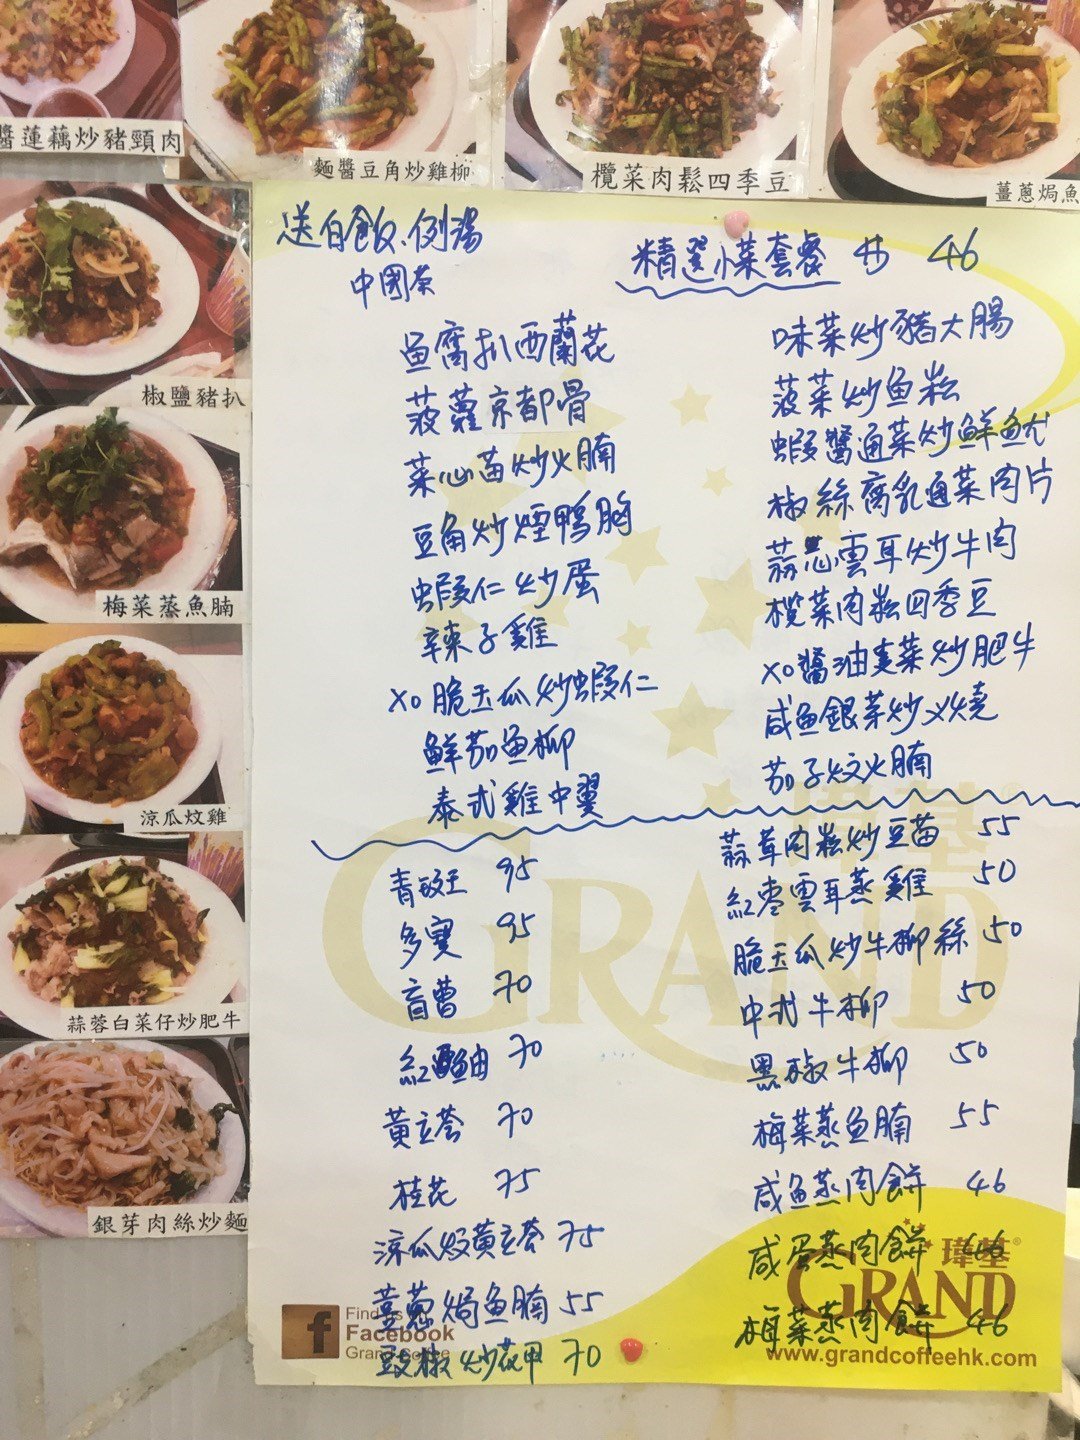 醬蓮藕炒豬頸肉
麵醬豆角炒雞柳
欖菜肉鬆四季豆
薑蔥焗魚
椒鹽豬扒
梅菜蒸魚腩
涼瓜炆雞
蒜蓉白菜仔炒肥牛
銀芽肉絲炒麵
送白飯、例湯
中國茶
精選小菜套餐 46
鱼腐扒西蘭花
菠蘿京都骨
菜心苗炒火腩
豆角炒煙鴨胸
蝦仁炒蛋
辣子雞
XO脆玉瓜炒蝦仁
鮮茄鱼柳
泰式雞中翼
味菜炒豬大腸
菠菜炒鱼崧
蝦醬通菜炒鮮魷
椒絲腐乳通菜肉片
蒜芯雲耳炒牛肉
榄菜肉崧四季豆
XO醬油麦菜炒肥牛
咸鱼銀芽炒叉燒
茄子炆火腩
青斑 95
多寶 95
盲曹 70
紅鱲 70
黃立苍 70
桂花 75
涼瓜炆黃立苍 75
薑蔥焗鱼腩 55
豉椒炒花甲 70
蒜茸肉崧炒豆苗 55
紅枣雲耳蒸雞 50
脆玉瓜炒牛柳絲 50
中式牛柳 50
黑椒牛柳 50
梅菜蒸鱼腩 55
咸鱼蒸肉餅 46
咸蛋蒸肉餅 46
梅菜蒸肉餅 46
GRAND
瑋基®
GRAND
f
Find us
Facebook
Grand Coffee
www.grandcoffeehk.com